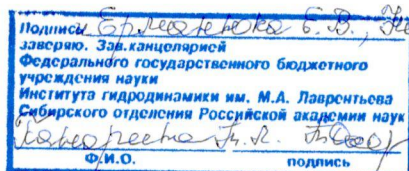 Подпись Ерманюка Е.В.,
заверяю. Зав.канцелярией
Федерального государственного бюджетного
учреждения науки
Института гидродинамики им. М.А. Лаврентьева
Сибирского отделения Российской академии наук
Ф.И.О. подпись